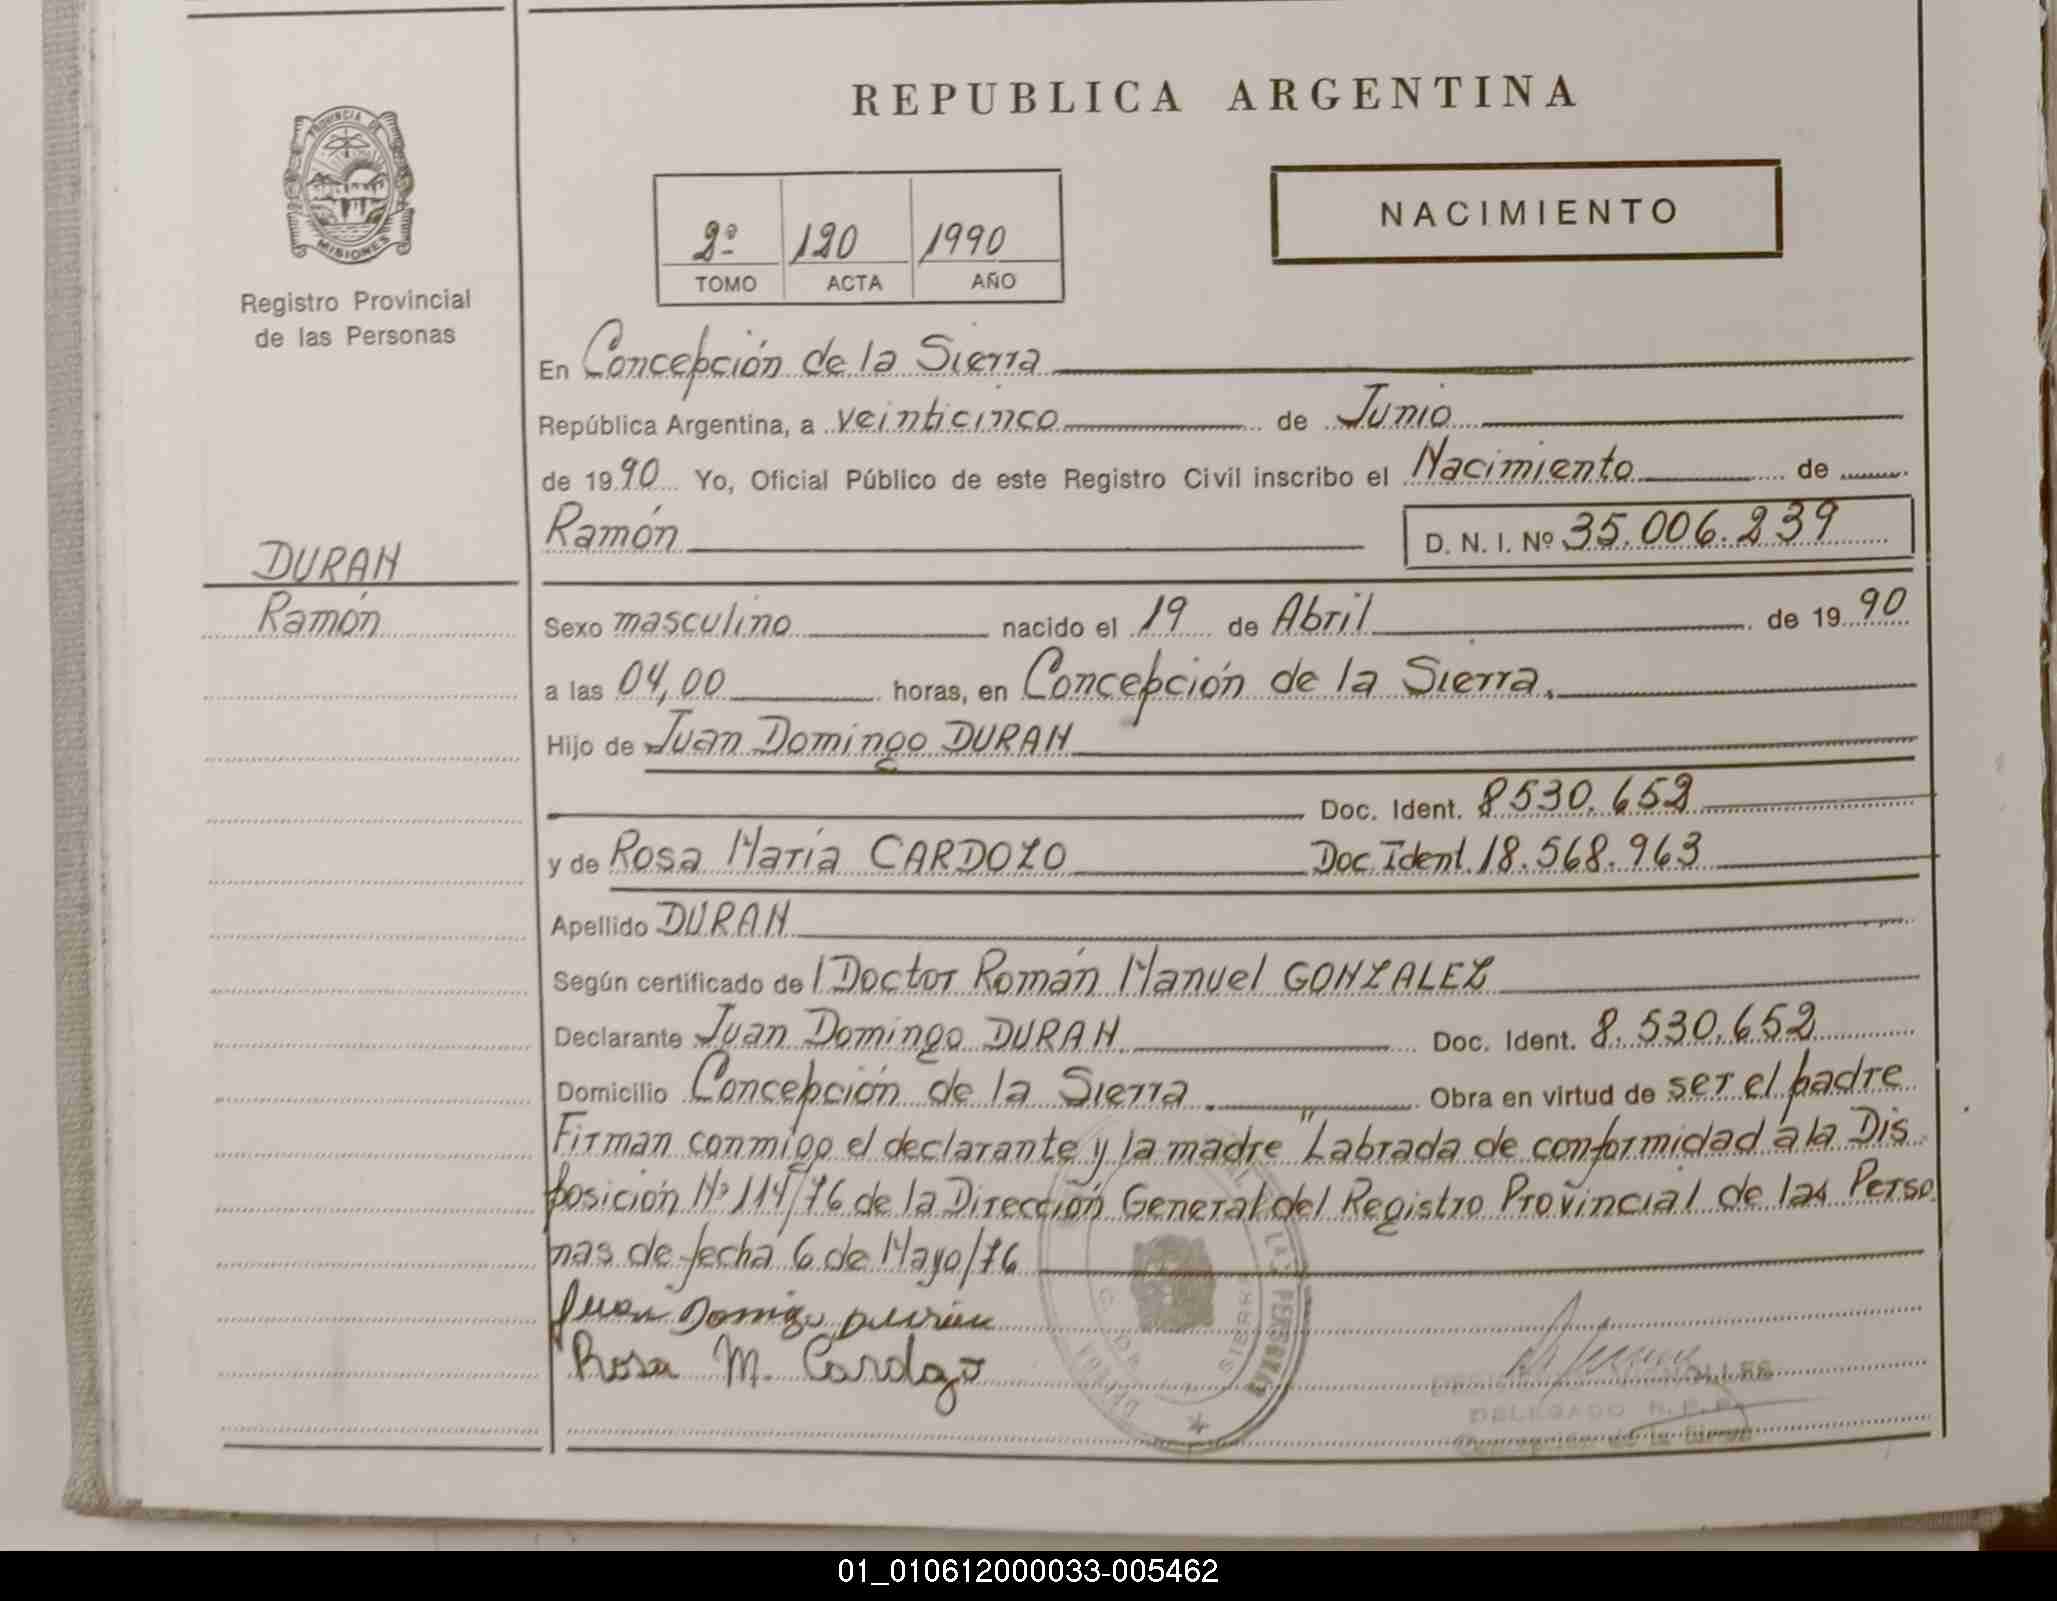 REPUBLICA ARGENTINA
PROVINCIA DE
MISIONES
Registro Provincial
de las Personas
2º 120 1990
TOMO ACTA AÑO
NACIMIENTO
En Concepción de la Sierra
República Argentina, a veinticinco de Junio
de 1990 Yo, Oficial Público de este Registro Civil inscribo el Nacimiento de
Ramón D. N. I. Nº 35.006.239
DURAN
Ramón
Sexo masculino nacido el 19 de Abril de 1990
a las 04,00 horas, en Concepción de la Sierra.
Hijo de Juan Domingo DURAN
Doc. Ident. 8530.652
y de Rosa María CARDOZO Doc. Ident. 18.568.963
Apellido DURAN
Según certificado de l Doctor Román Manuel GONZALEZ
Declarante Juan Domingo DURAN Doc. Ident. 8.530.652
Domicilio Concepción de la Sierra. Obra en virtud de ser el padre
Firman conmigo el declarante y la madre "Labrada de conformidad a la Dis
posición Nº 114/76 de la Dirección General del Registro Provincial de las Perso
nas de fecha 6 de Mayo/76
Juan Domigo Durán
Rosa M. Cardozo
LAS PERSONAS
C. DE LA SIERRA
DELEGADO R.P.P.
Concepción de la Sierra
01_010612000033-005462